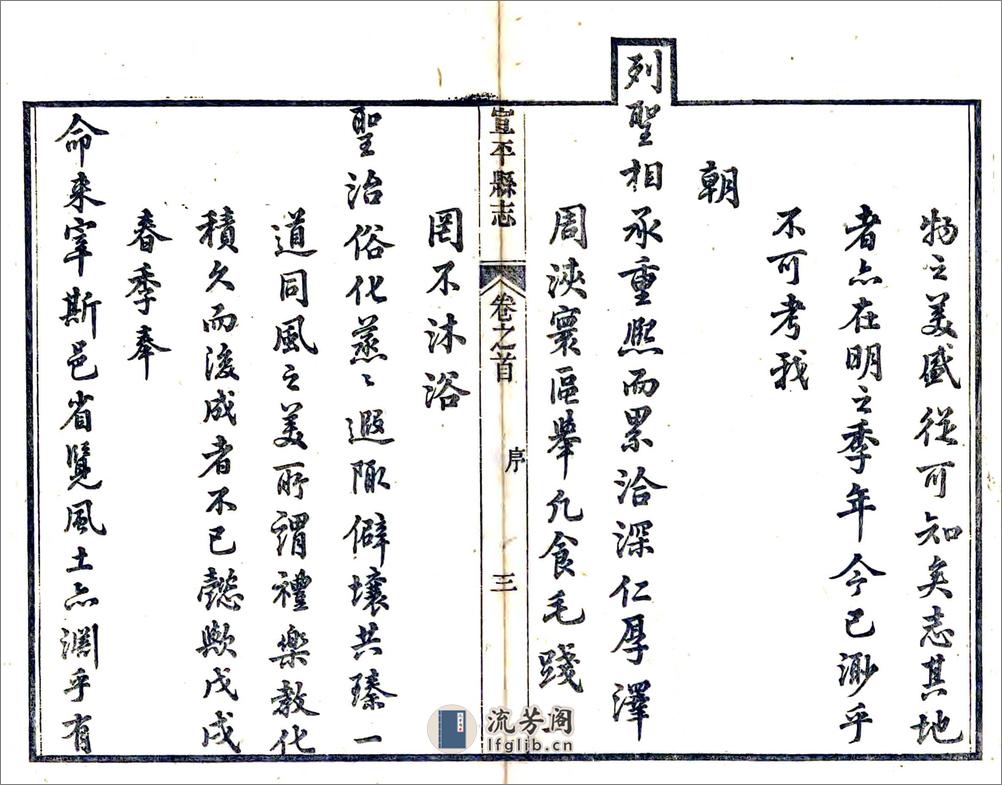 物之美盛從可知矣志其地
者亦在明之季年今已渺乎
不可考我
朝
列聖相承重熙而累洽深仁厚澤
周浹寰區舉凡食毛踐
宣平縣志
卷之首
序
三
罔不沐浴
聖治俗化蒸〻遐陬僻壤共臻一
道同風之美所謂禮樂教化
積久而後成者不已懿歟戊戌
春季奉
命來宰斯邑省覽風土亦淵乎有
流芳阁
lfglib.cn